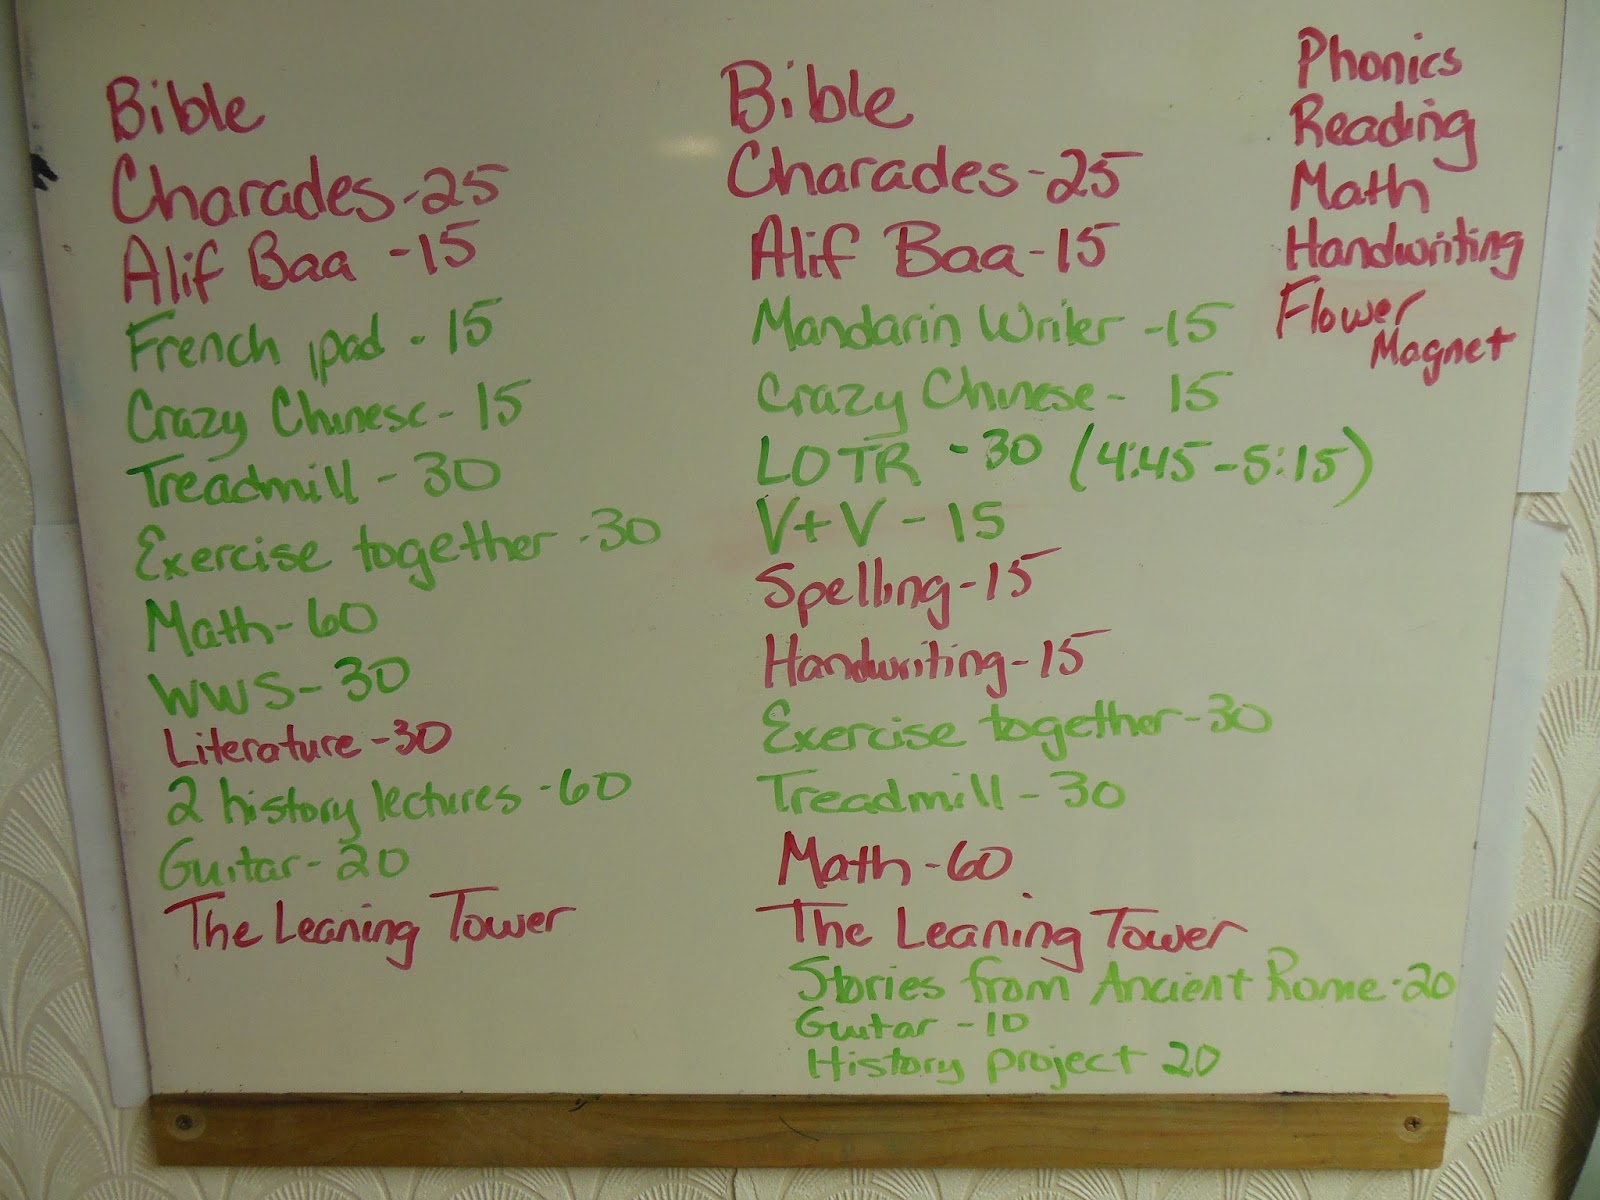 Bible
Charades-25
Alif Baa -15
French ipad - 15
Crazy Chinese - 15
Treadmill - 30
Exercise together -30
Math- 60
WWS- 30
Literature -30
2 history lectures -60
Guitar- 20
The Leaning Tower
Bible
Charades -25
Alif Baa -15
Mandarin Writer -15
Crazy Chinese - 15
LOTR -30 (4:45-5:15)
V+V - 15
Spelling -15
Handwriting -15
Exercise together -30
Treadmill - 30
Math -60
The Leaning Tower
Stories from Ancient Rome -20
Guitar -10
History project 20
Phonics
Reading
Math
Handwriting
Flower
Magnet